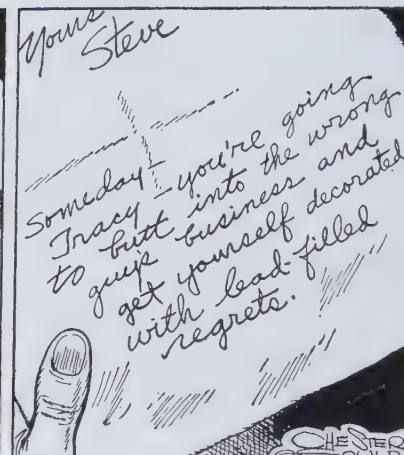 Yours
Steve
Someday—
Tracy—you're going
to butt into the wrong
guys business and
get yourself decorated
with lead-filled
regrets.
CHESTER
GOULD